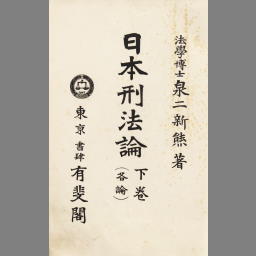 法學博士 泉二新熊 著
日本刑法論 下巻
(各論)
東京 書肆 有斐閣